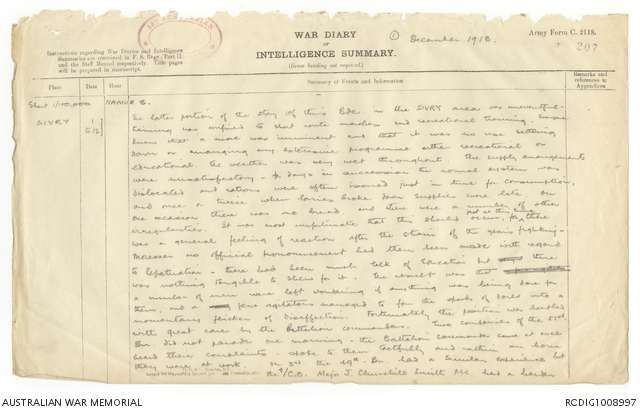 WAR DIARY
or
INTELLIGENCE SUMMARY.
(Erase heading not required).
① December 1918.
Army Form C. 2118.
207
Instructions regarding War Diaries and Intelligence
Summaries are contained in F. S. Regs., Part II.
and the Staff Manual respectively. Title pages
will be prepared in manuscript.
Place
Date
Hour
Summary of Events and Information
Remarks and
references to
Appendices
Sheet 1/100,000
NAMUR 8.
SIVRY
1
5/12
The latter portion of the stay of this Bde in the SIVRY area was uneventful.
training was confined to short route marches and recreational training.
known that a move was imminent and that it was no use settling
down or arranging any extensive programme either recreational or
educational. The weather was very wet throughout. The supply arrangements
were unsatisfactory - days in succession the normal system was
dislocated and rations were often issued just in time for consumption,
and once or twice when lorries broke down supplies were late. On
one occasion there was no bread and there were a number of other
irregularities. It was most unfortunate that this should occur just at this time, for there
was a general feeling of reaction after the strain of the years fighting.
Moreover no official pronouncement had then been made with regard
to repatriation - there had been much talk of Education but there
was nothing tangible to show for it - the result was that
a number of men were left wondering if anything was being done for
them, and a few agitators managed to fan the sparks of into a
momentary flicker of disaffection. Fortunately the position was handled
with great care by the Battalion commanders. Two companies of the 51st
Bn. did not parade one morning - the Battalion commander came at once
heard their complaints, spoke to them tactfully and within an hour
they were at work. On 3rd the 49th Bn had a similar experience but
the T/C.O. Major J. Churchill Smith MC had a harder
AUSTRALIAN WAR MEMORIAL
RCDIG1008997